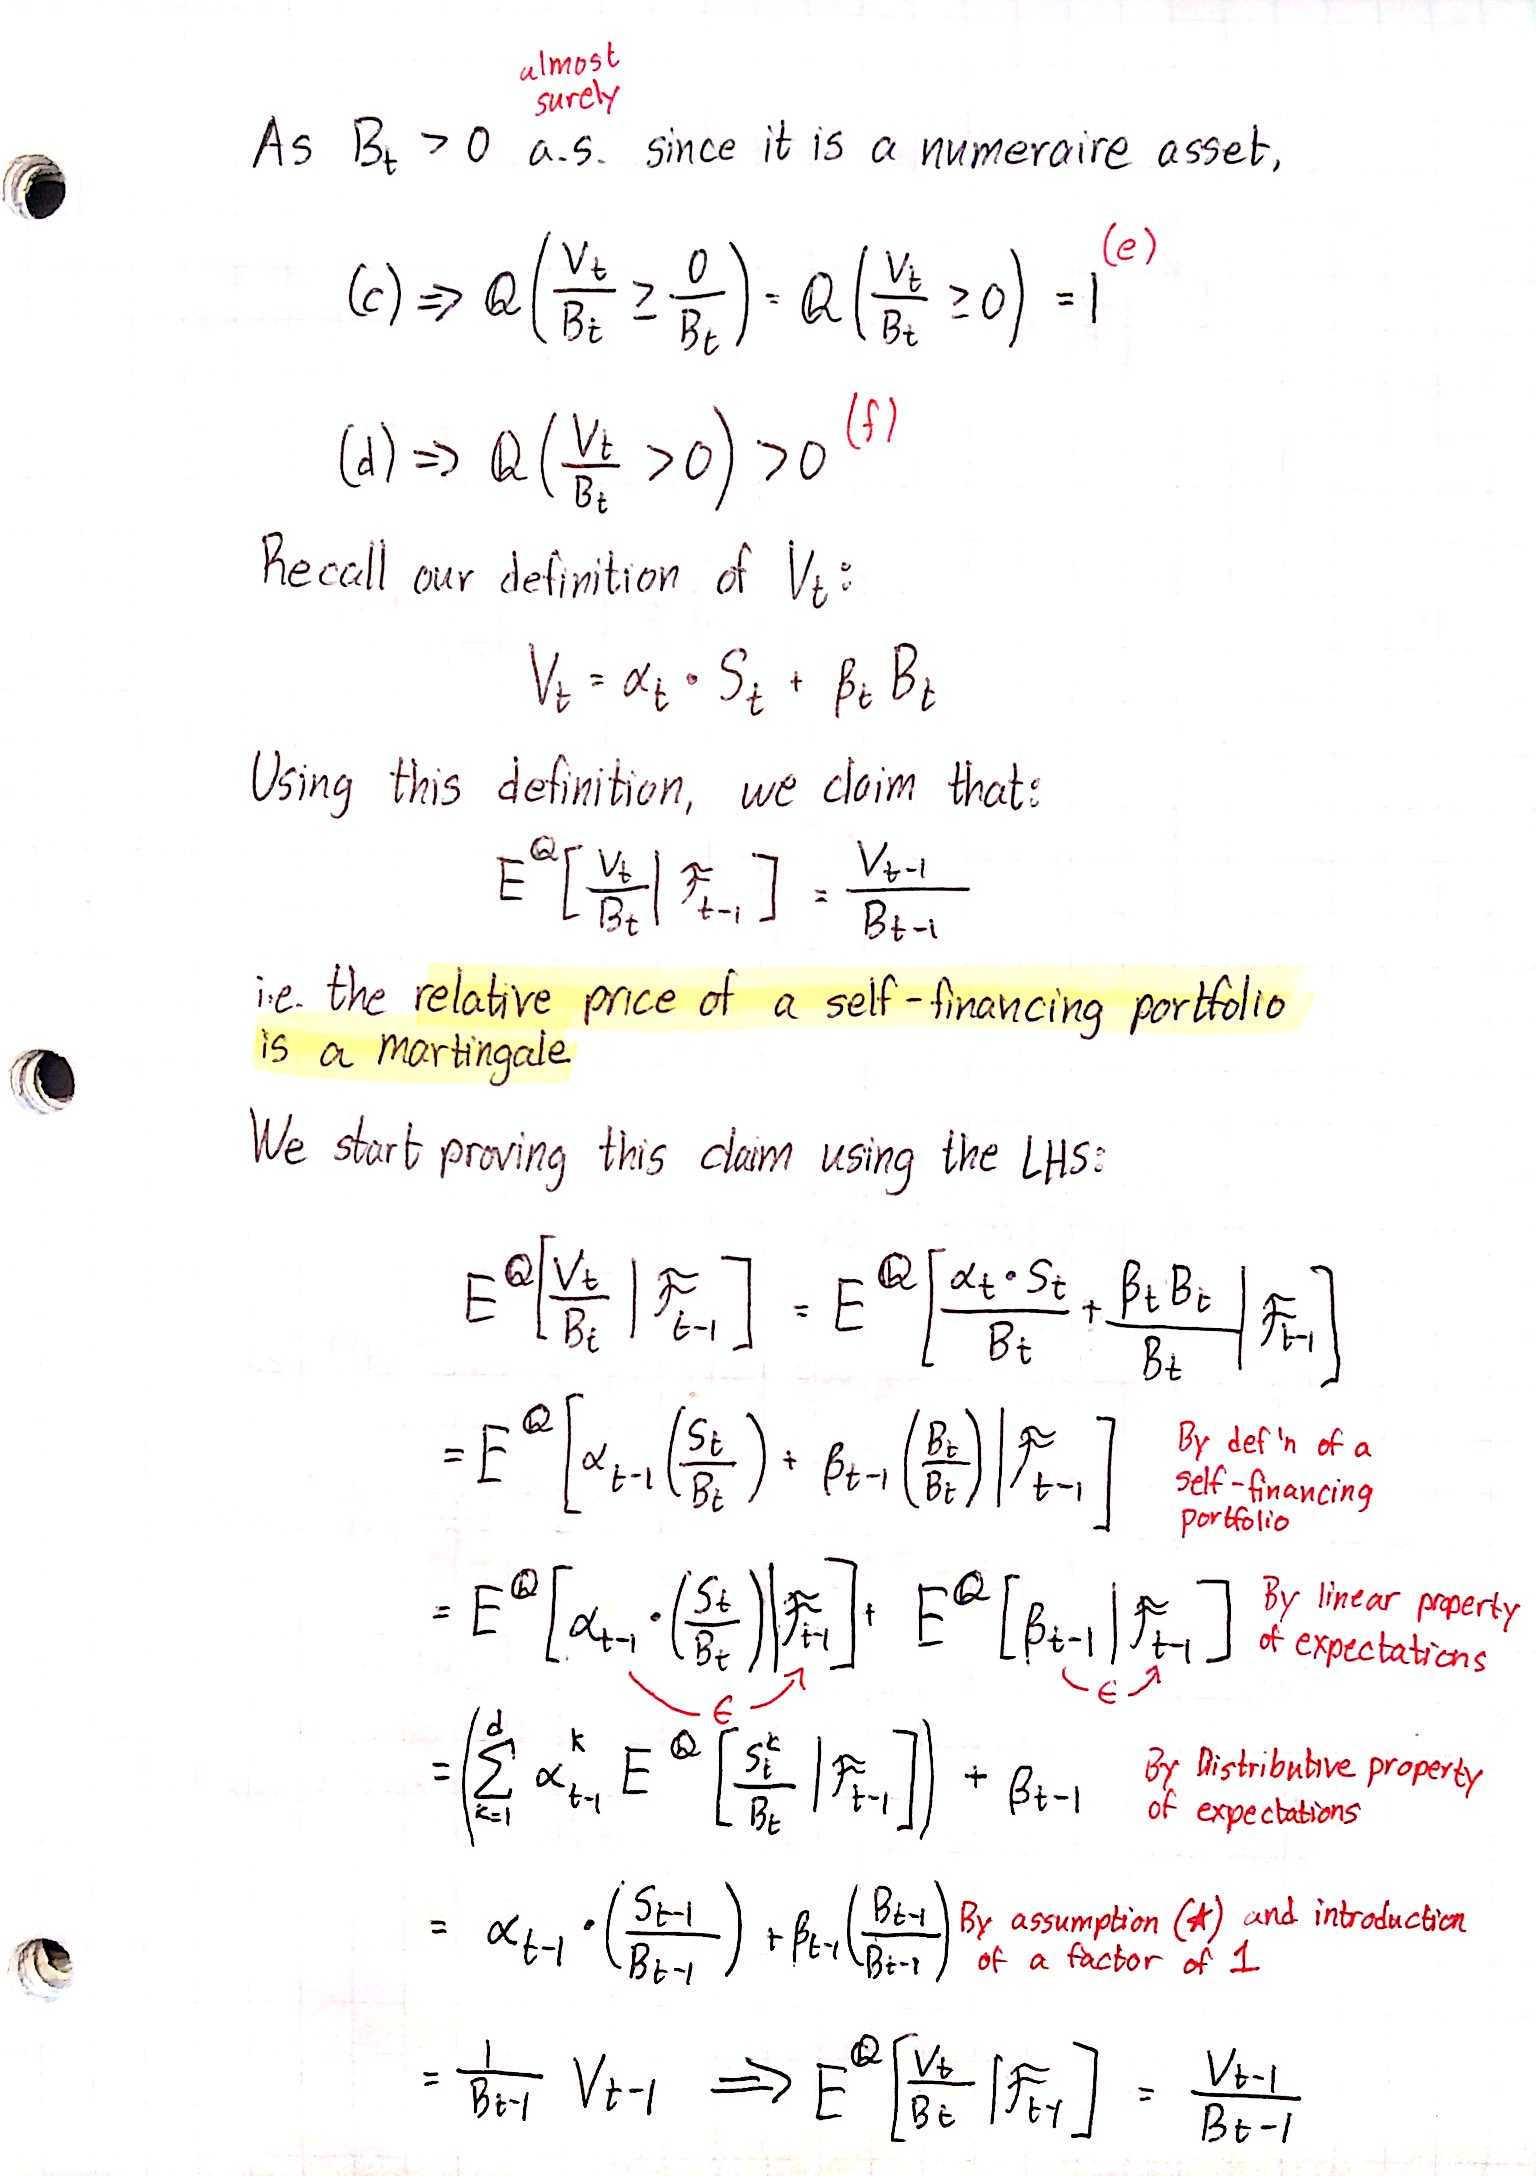 almost
surely
As B_t > 0 a.s. since it is a numeraire asset,
(c) ⇒ Q(V_t/B_t ≥ 0/B_t) = Q(V_t/B_t ≥ 0) = 1 (e)
(d) ⇒ Q(V_t/B_t > 0) > 0 (f)
Recall our definition of V_t:
V_t = α_t · S_t + β_t B_t
Using this definition, we claim that:
E^Q[V_t/B_t | F_{t-1}] = V_{t-1}/B_{t-1}
i.e. the relative price of a self-financing portfolio
is a martingale
We start proving this claim using the LHS:
E^Q[V_t/B_t | F_{t-1}] = E^Q[α_t · S_t/B_t + β_t B_t/B_t | F_{t-1}]
= E^Q[α_{t-1}(S_t/B_t) + β_{t-1}(B_t/B_t) | F_{t-1}] By def'n of a
self-financing
portfolio
= E^Q[α_{t-1} · (S_t/B_t) | F_{t-1}] + E^Q[β_{t-1} | F_{t-1}] By linear property
of expectations
∈ ∈
= (∑_{k=1}^d α_{t-1}^k E^Q[S_t^k/B_t | F_{t-1}]) + β_{t-1} By Distributive property
of expectations
= α_{t-1} · (S_{t-1}/B_{t-1}) + β_{t-1}(B_{t-1}/B_{t-1}) By assumption (★) and introduction
of a factor of 1
= 1/B_{t-1} V_{t-1} ⟹ E^Q[V_t/B_t | F_{t-1}] = V_{t-1}/B_{t-1}